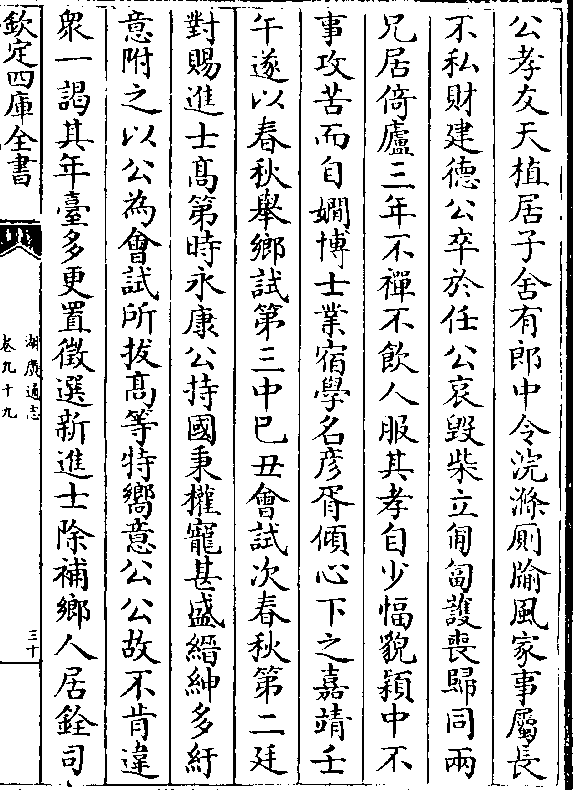 公孝友天植居子舍有郎中令浣滌厠牏風家事屬長
不私財建德公卒於任公哀毀柴立匍匐護喪歸同兩
兄居倚廬三年不禫不飲人服其孝自少幅貌頴中不
事攻苦而自嫺博士業宿學名彦胥傾心下之嘉靖壬
午遂以春秋舉鄉試第三中己丑會試次春秋第二廷
對賜進士髙第時永康公持國秉權寵甚盛縉紳多紆
意附之以公為會試所拔髙等特嚮意公公故不肯違
衆一謁其年臺多更置徵選新進士除補鄉人居銓司
欽定四庫全書
湖廣通志
卷九十九
三十